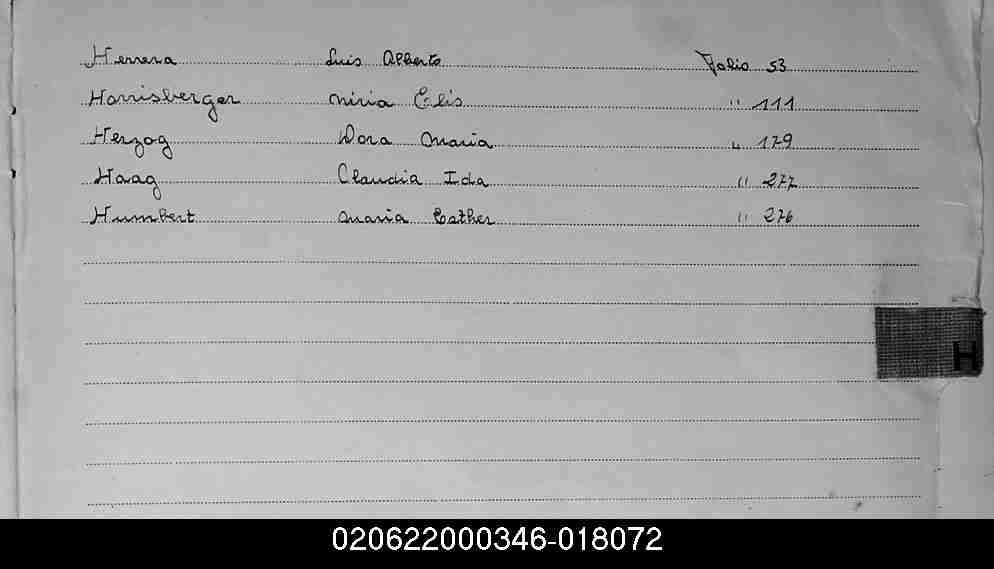 Herrera Luis Alberto Folio 53
Harrisberger Miria Elis " 111
Herzog Dora Maria " 179
Haag Claudia Ida " 277
Humbert Maria Esther " 276
H
020622000346-018072